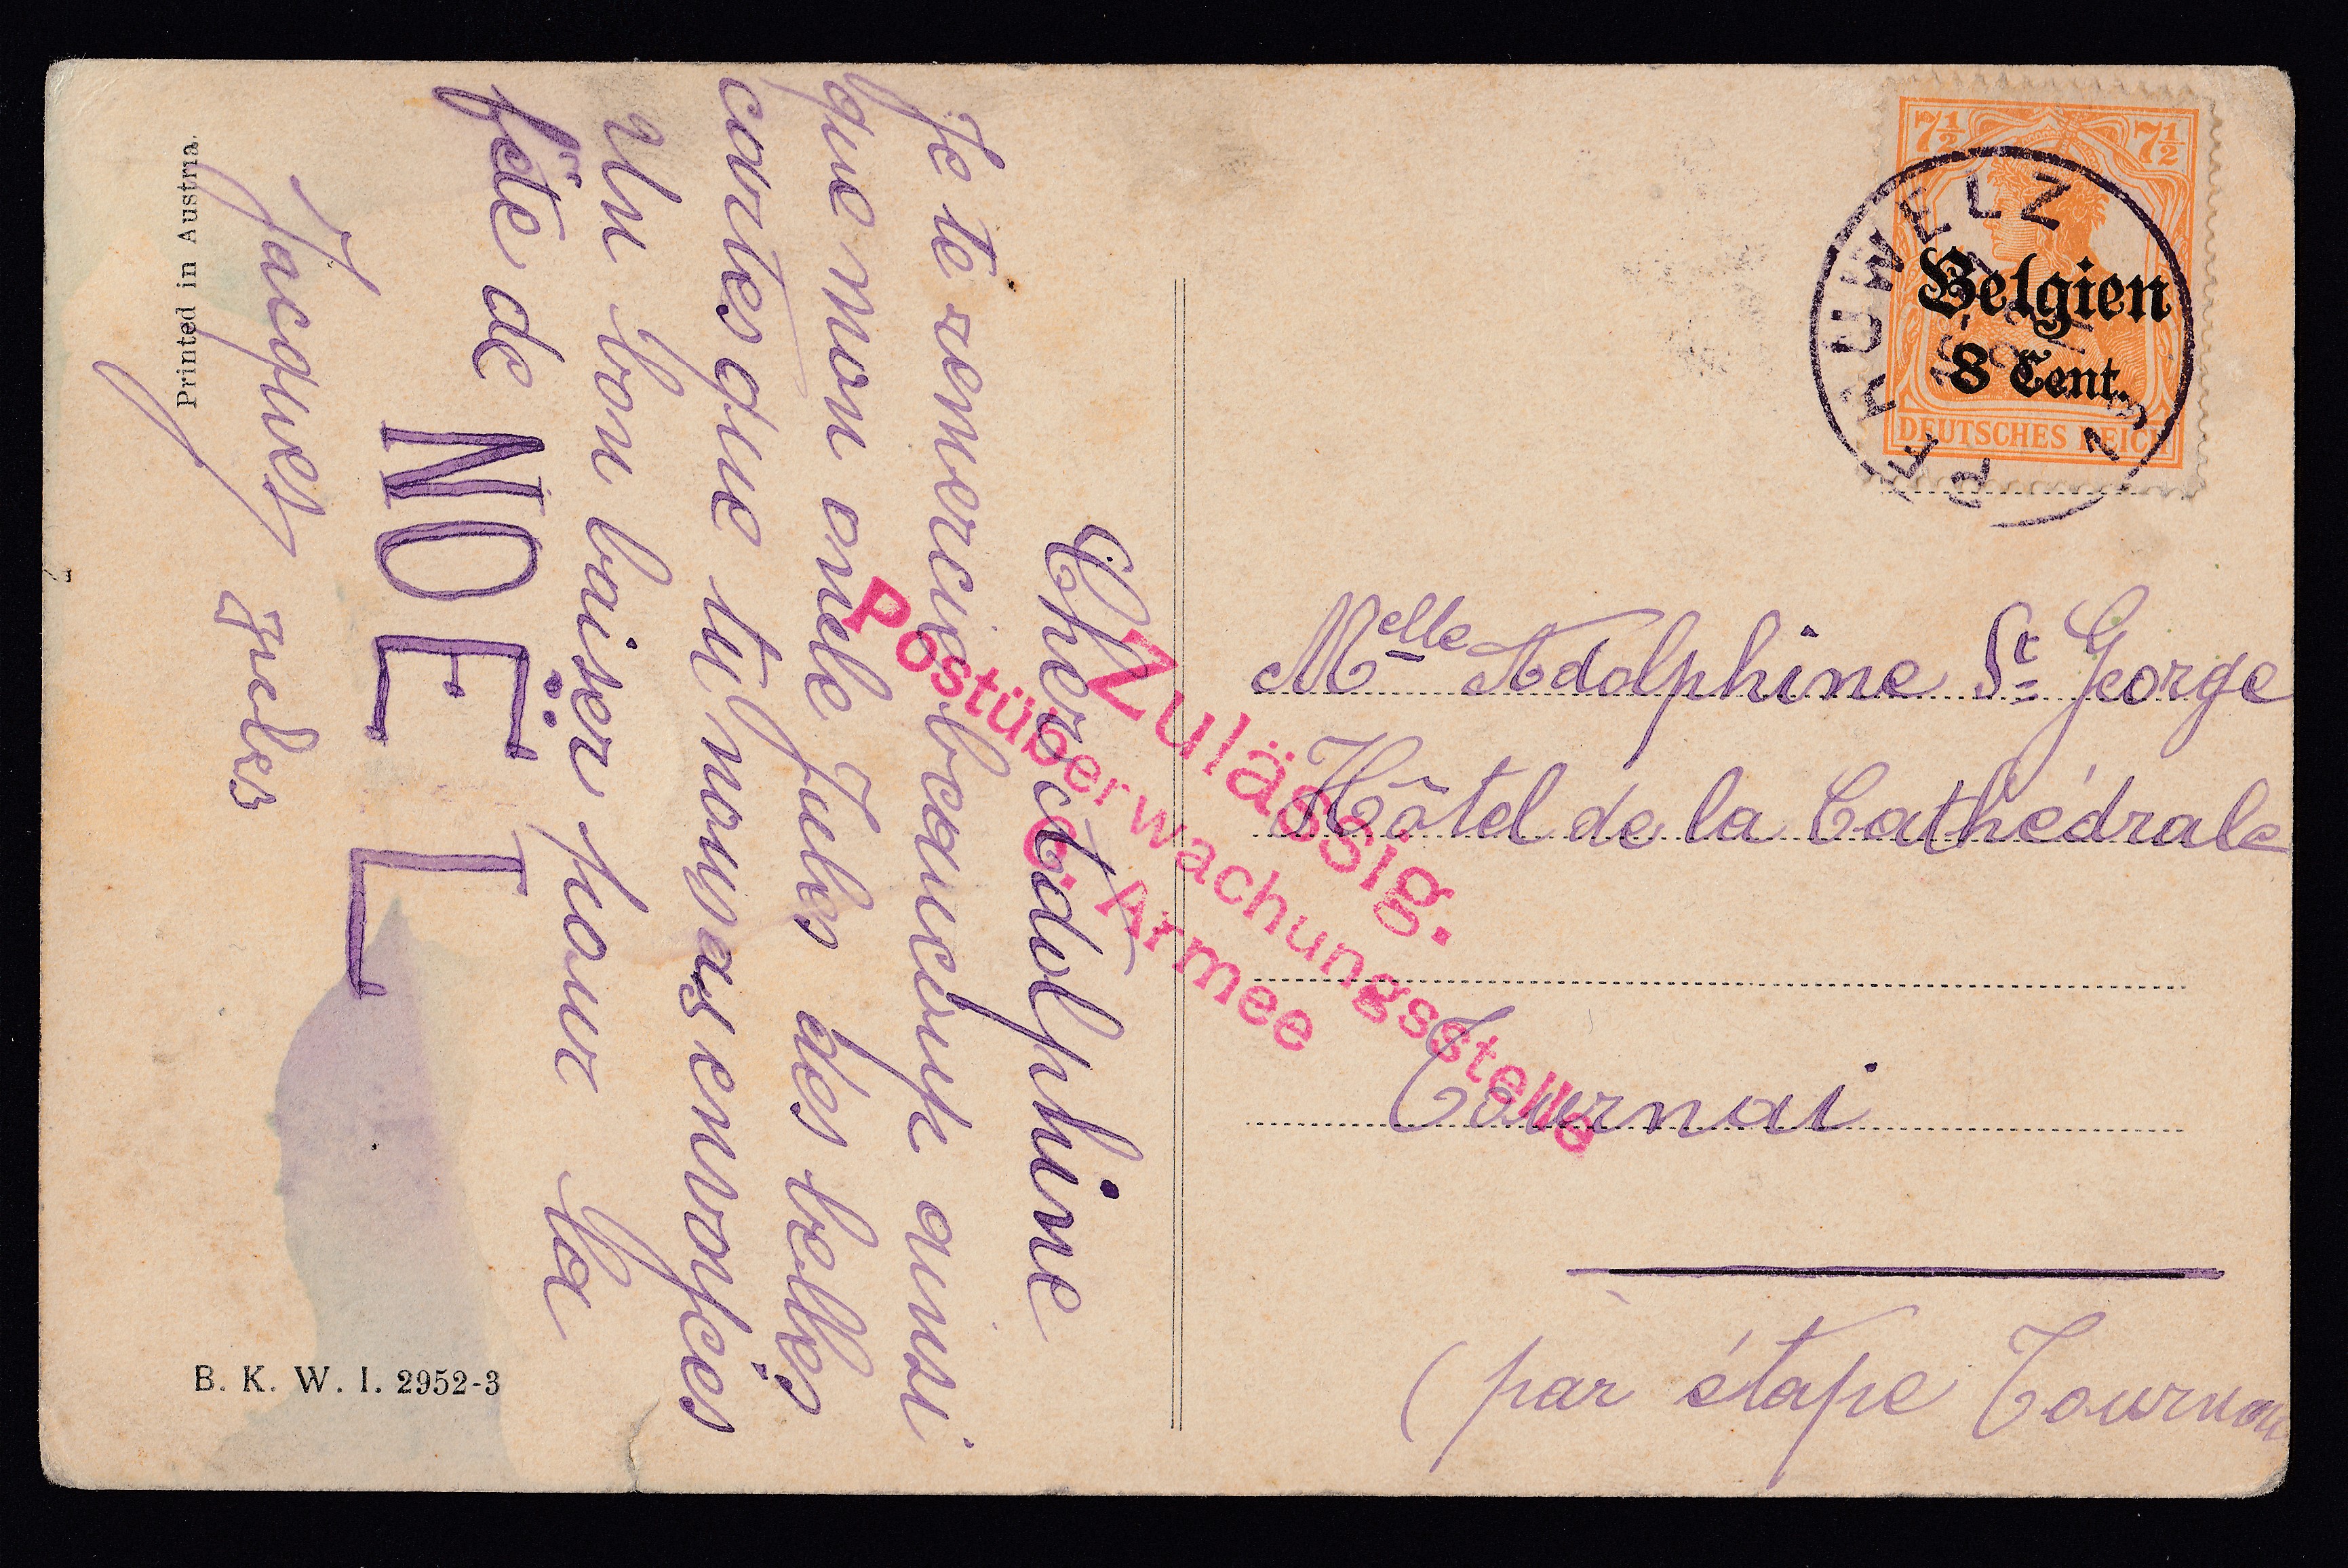 Cher Adolphine
Je te remercie beaucoup ainsi
que mon oncle Jules des belles
cartes que tu nous as envoyées
Un bon baiser pour la
fête de
NOËL
Jacques Jules
Printed in Austria.
B. K. W. I. 2952-3
7½ 7½
Belgien
8 Cent.
DEUTSCHES REICH
PERUWELZ
Zulässig.
Postüberwachungsstelle
6. Armee
Melle Adolphine St George
Hôtel de la Cathédrale
Tournai
(par étape Tournai